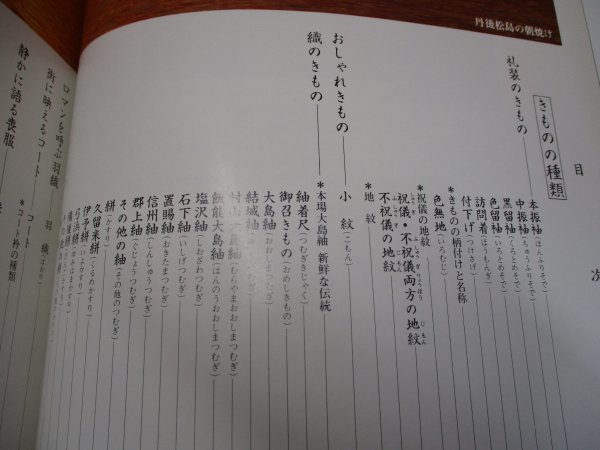 丹後松島の朝焼け
目
次
きものの種類
礼装のきもの
本振袖(ほんふりそで)
中振袖(ちゅうふりそで)
黒留袖(くろとめそで)
色留袖(いろとめそで)
訪問着(ほうもんぎ)
付下げ(つけさげ)
*きものの柄付けと名称
色無地(いろむじ)
*祝儀の地紋
祝儀・不祝儀両方の地紋
不祝儀の地紋
*地紋
おしゃれきもの
小紋(こもん)
織のきもの
*本場大島紬 新鮮な伝統
紬着尺(つむぎきじゃく)
御召きもの(おめしきもの)
大島紬(おおしまつむぎ)
結城紬
村山大島紬(むらやまおおしまつむぎ)
飯能大島紬(はんのうおおしまつむぎ)
塩沢紬(しおざわつむぎ)
石下紬(いしげつむぎ)
置賜紬(おきたまつむぎ)
信州紬(しんしゅうつむぎ)
郡上紬(ぐじょうつむぎ)
その他の紬(その他のつむぎ)
絣(かすり)
久留米絣(くるめかすり)
伊予絣(いよかすり)
弓浜絣(ゆみはまかすり)
ロマンを呼ぶ羽織
羽織(はおり)
街に映えるコート
コート
*コート衿の種類
静かに語る喪服